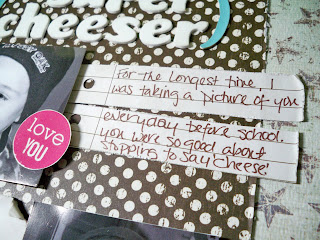 super
cheeser
For the longest time, I
was taking a picture of you
everyday before school.
you were so good about
stopping to say cheese!
love
YOU